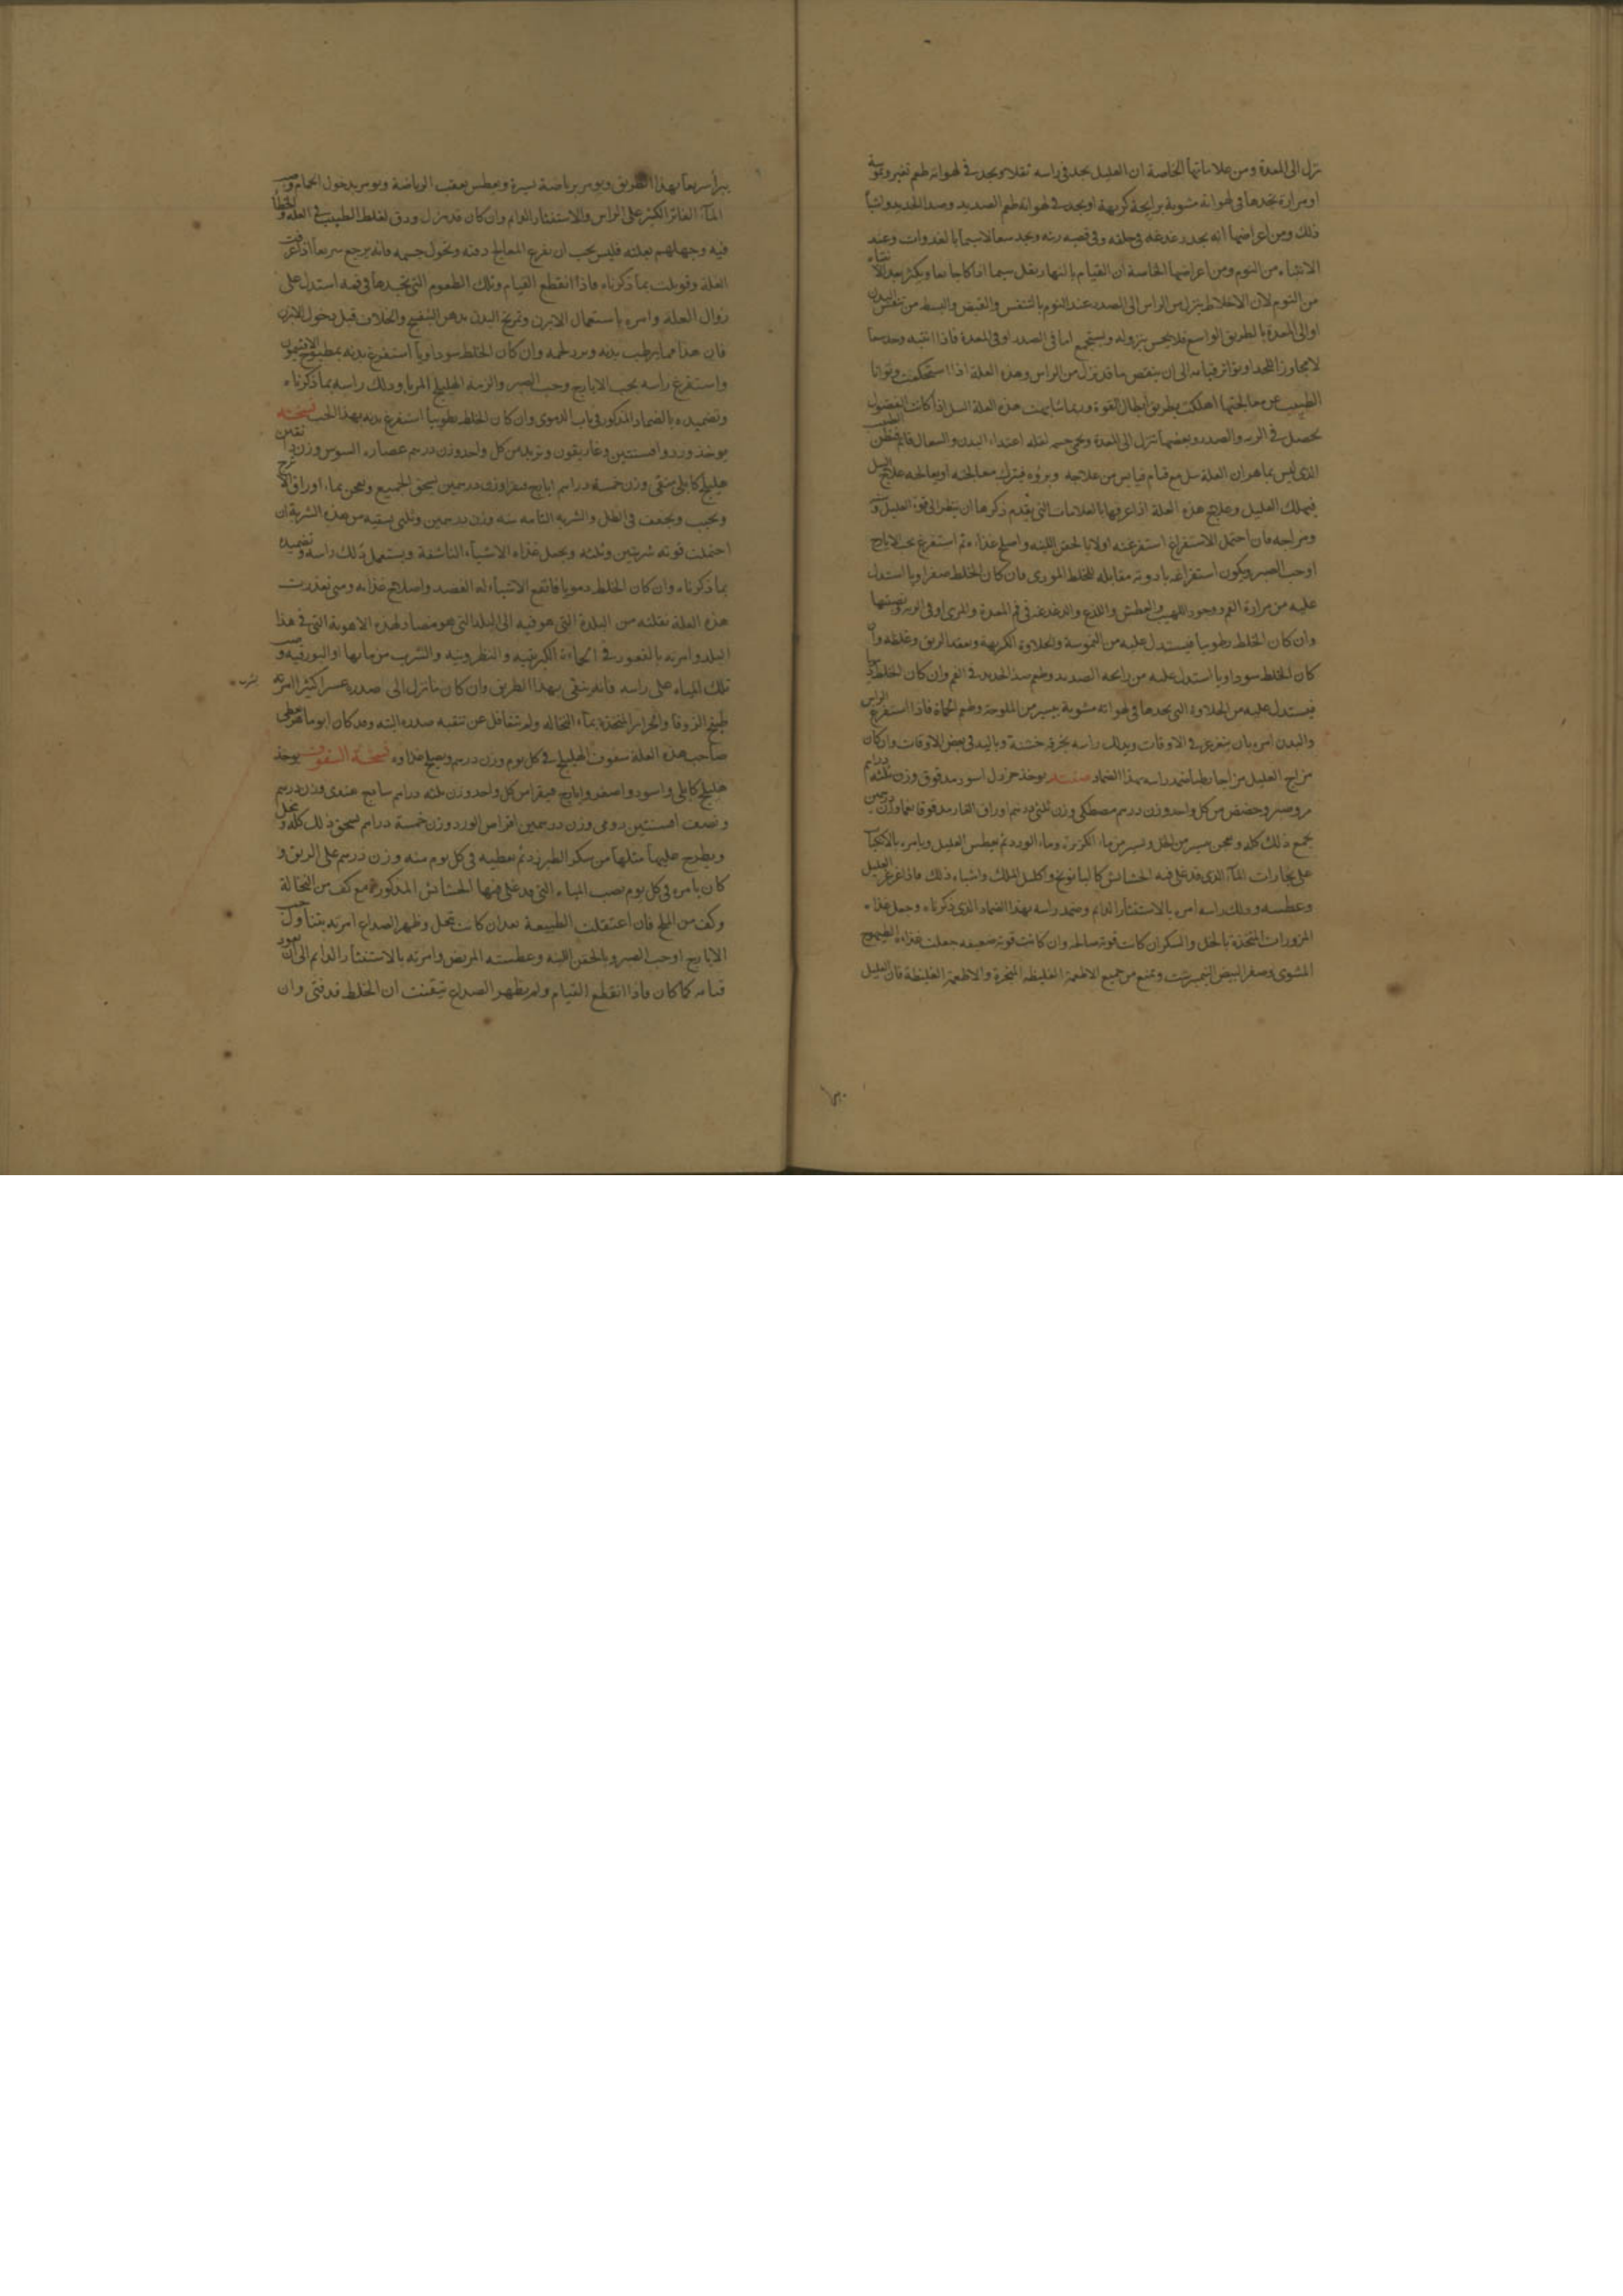 نزل الى المعدة ومن علاماتها الخاصة ان العليل يجد في راسه ثقلا ويجد في لهواته طعم تغير وحموسة
او مرارة يجدها في لهواته مشوبة برايحة كريهة او يجد في لهواته طعم الصديد وصدا الحديد واشباه
ذلك ومن اعراضها انه يجد دغدغة في حلقه وفي قصبه رئه ويجد سعالا سيما بالغدوات وعند
الانتباه من النوم ومن اعراضها الخاسة ان القيام بالنهار يقل سيما اذا كان جايعا ويكثر بعد الانتباه
من النوم لان الاخلاط ينزل من الراس الى الصدر عند النوم بالتنفس والقبض والبسط من تنفس البدن
او الى المعدة بالطريق الواسع فلا يحس بنزوله ويستجمع اما في الصدر او في المعدة فاذا انتبه وجد سعالا
لا يجاوز اللحد او تواتر قيامه الى ان ينقص ما قد نزل من الراس وهذه العلة اذا استحكمت وتوانا
الطبيب عن معالجتها اهلكت بطريق ابطال القوة وربما شابهت هذه العلة السل اذا كانت الفضول
يحصل في الريه والصدر وبعضها تنزل الى المعدة ويحمى جسمه لقله اغتذاء البدن والسعال قايم فيظن الطبيب
الذي ليس بماهر ان العلة سل مع قيام فيايس من علاجه وبروه فيترك معالجته او يعالجه علاج السل
فيهلك العليل وعلاج هذه العلة اذا عرفها بالعلامات التي يقدم ذكرها ان ينظر الى قوة العليل وسنه
ومزاجه فان احتمل الاستفراغ استفرغته اولا بالحقن اللينه واصلح غذاءه ثم استفرغ بحب الايارج
او حب الصبر ويكون استفراغه بادوته مقابله للخلط الموذي فان كان الخلط صفراويا استدل
عليه من مرارة الفم ووجود اللهيب والعطش واللذع والدغدغه في فم المعدة والمري او في الريه وقصبتها
وان كان الخلط رطوبيا فيستدل عليه من الحموسة والحلاوة الكريهة وبعقد الريق وغلظه وان
كان الخلط سوداويا استدل عليه من رايحه الصديد وطعم صدا الحديد في الفم وان كان الخلط دمويا
فيستدل عليه من الحلاوة التي يجدها في لهواته مشوبة بيسير من الملوحة وطعم الحماة فاذا استفرغ الراس
والبدن امره بان يتغرغر في الاوقات ويدلك راسه بخرقه خشنة وباليد في بعض الاوقات وان كان
مزاج العليل مزاجا رطبا ضمد راسه بهذا الضماد صفته يوخذ خردل اسود مدقوق وزن ثلثه دراهم
مر وصبر وحضض من كل واحد وزن درهم مصطكي وزن ثلثي درهم اوراق الغار مدقوقا نعما وزن درهمين
يجمع ذلك كله ويعجن بيسير من الخل ويسير من ماء الكزبرة وماء الورد ثم يعطس العليل ويامره بالانكباب
على بخارات الماء الذي قد غلى فيه الحشائش كالبابونج واكليل الملك واشباه ذلك فاذا غرغر العليل
وعطسه ودلك راسه امره بالاستنثار الدايم وضمد راسه بهذا الضماد الذي ذكرناه وجعل غذاه
المزورات المتخذة بالخل والسكر ان كانت قوته صالحه وان كانت قوته ضعيفه جعلت غذاءه الطيهوج
المشوي وصفر البيض النيمبرشت ويمنع من جميع الاطعمة الغليظة المبخرة والاطعمة الغليظة فان العليل
يبرا سريعا بهذا الطريق ويومر برياضة يسيرة ويعطس بعقب الرياضة ويومر بدخول الحمام وصب
الماء الفاتر الكثير على الراس والاستنثار الدايم وان كان قد هزل ودق لغلط الطبيب في العلة والخطا
فيه وجهلهم بعلته فليس يجب ان يفزع المعالج دقته ونحول جسمه فانه يرجع سريعا اذا عرفت
العلة وقوبلت بما ذكرناه فاذا انقطع القيام وتلك الطعوم التي يجدها في فمه استدل على
زوال العلة وامره باستعمال الابزن وتمريخ البدن بدهن البنفسج والخلاف قبل دخول الابزن
فان هذا مما يرطب بدنه ويرد لحمه وان كان الخلط سوداويا استفرغ بدنه بمطبوخ الافتيمون
واستفرغ راسه بحب الايارج وحب الصبر والزمه الهليلج المربا ودلك راسه بما ذكرناه
وتضميده بالضماد المذكور في باب الدموي وان كان الخلط رطوبيا استفرغ بدنه بهذا الحب نسخته
يوخذ ورد وافسنتين وغاريقون وتربد من كل واحد وزن درهم عصاره السوس وزن دانقين
هليلج كابلي منقى وزن خمسة دراهم ايارج فيقرا وزن درهمين يسحق الجميع ويعجن بماء اوراق الاترج
ويحبب ويجفف في الظل والشربه التامه منه وزن درهمين وثلثي يسقيه من هذه الشربة ان
احتملت قوته شربتين وثلثه ويجعل غذاه الاشياء الناشفة ويستعمل دلك راسه وتضميده
بما ذكرناه وان كان الخلط دمويا فانفع الاشياء له الفصد واصلاح غذاءه ومتى تعذرت
هذه العلة نقلته من البلدة التي هو فيه الى البلد التي هو مضاد لهذه الاهوية التي في هذا
البلد وامرته بالقعود في الحماءة الكبريتيه والنطرونيه والشرب من مائها او البورقيه وصب
تلك المياه على راسه فانه ينقى بهذا الطريق وان كان ما نزل الى صدره عسرا كثيرا امرته
بشرب
طبيخ الزوفا والحراير المتخذة بماء النخاله ولم تتغافل عن تنقيه صدره البته وقد كان ابو ماهر يعطي
صاحب هذه العلة سفوف الهليلج في كل يوم وزن درهم ويصلح غذاوه نسخة السفوف يوخذ
هليلج كابلي واسود واصفر وايارج فيقرا من كل واحد وزن ثلثه دراهم ساذج هندي وزن درهم
ونصف افسنتين رومي وزن درهمين اقراص الورد وزن خمسة دراهم يسحق ذلك كله وينخل
ويطرح عليها مثلها من سكر الطبرزد ثم يعطيه في كل يوم منه وزن درهم على الريق و
كان يامره في كل يوم بصب المياه التي قد غلي فيها الحشائش المذكورة مع كف من النخالة
وكف من الملح فان اعتقلت الطبيعة بعد ان كانت تنحل وظهر الصداع امرته بتناول حب
الايارج او حب الصبر وبالحقن اللينه وعطسته المريض وامرته بالاستنثار الدايم الى ان يعود
قيامه كما كان فاذا انقطع القيام ولم يظهر الصداع تيقنت ان الخلط قد فني وان